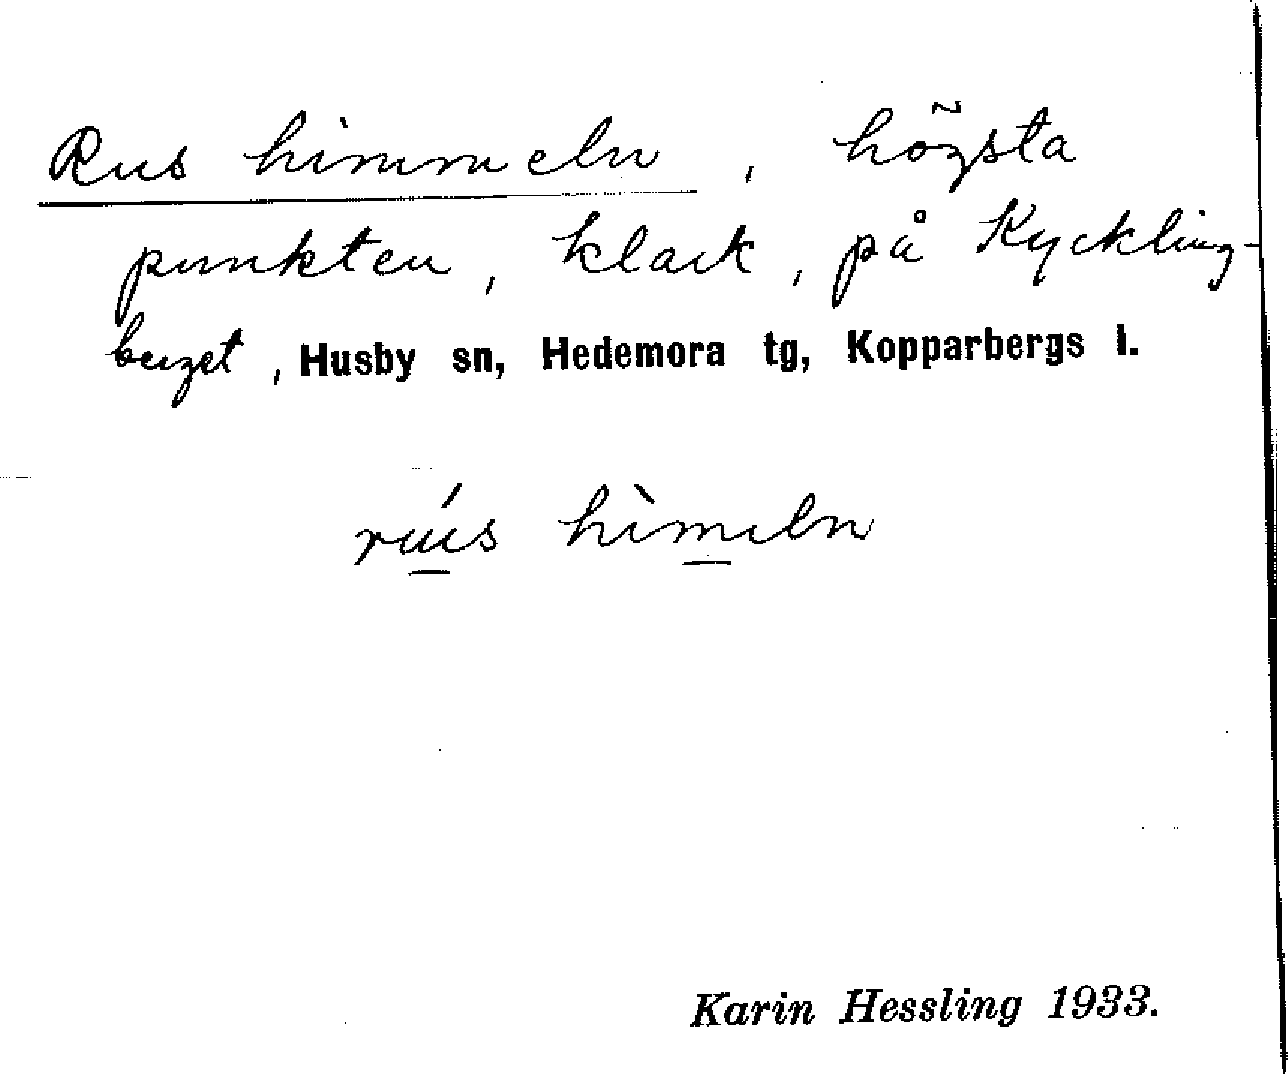 Rus himmeln, högsta
punkten, klack, på Kyckling-
berget, Husby sn, Hedemora tg, Kopparbergs l.
rú̱s hìm̱eln
Karin Hessling 1933.